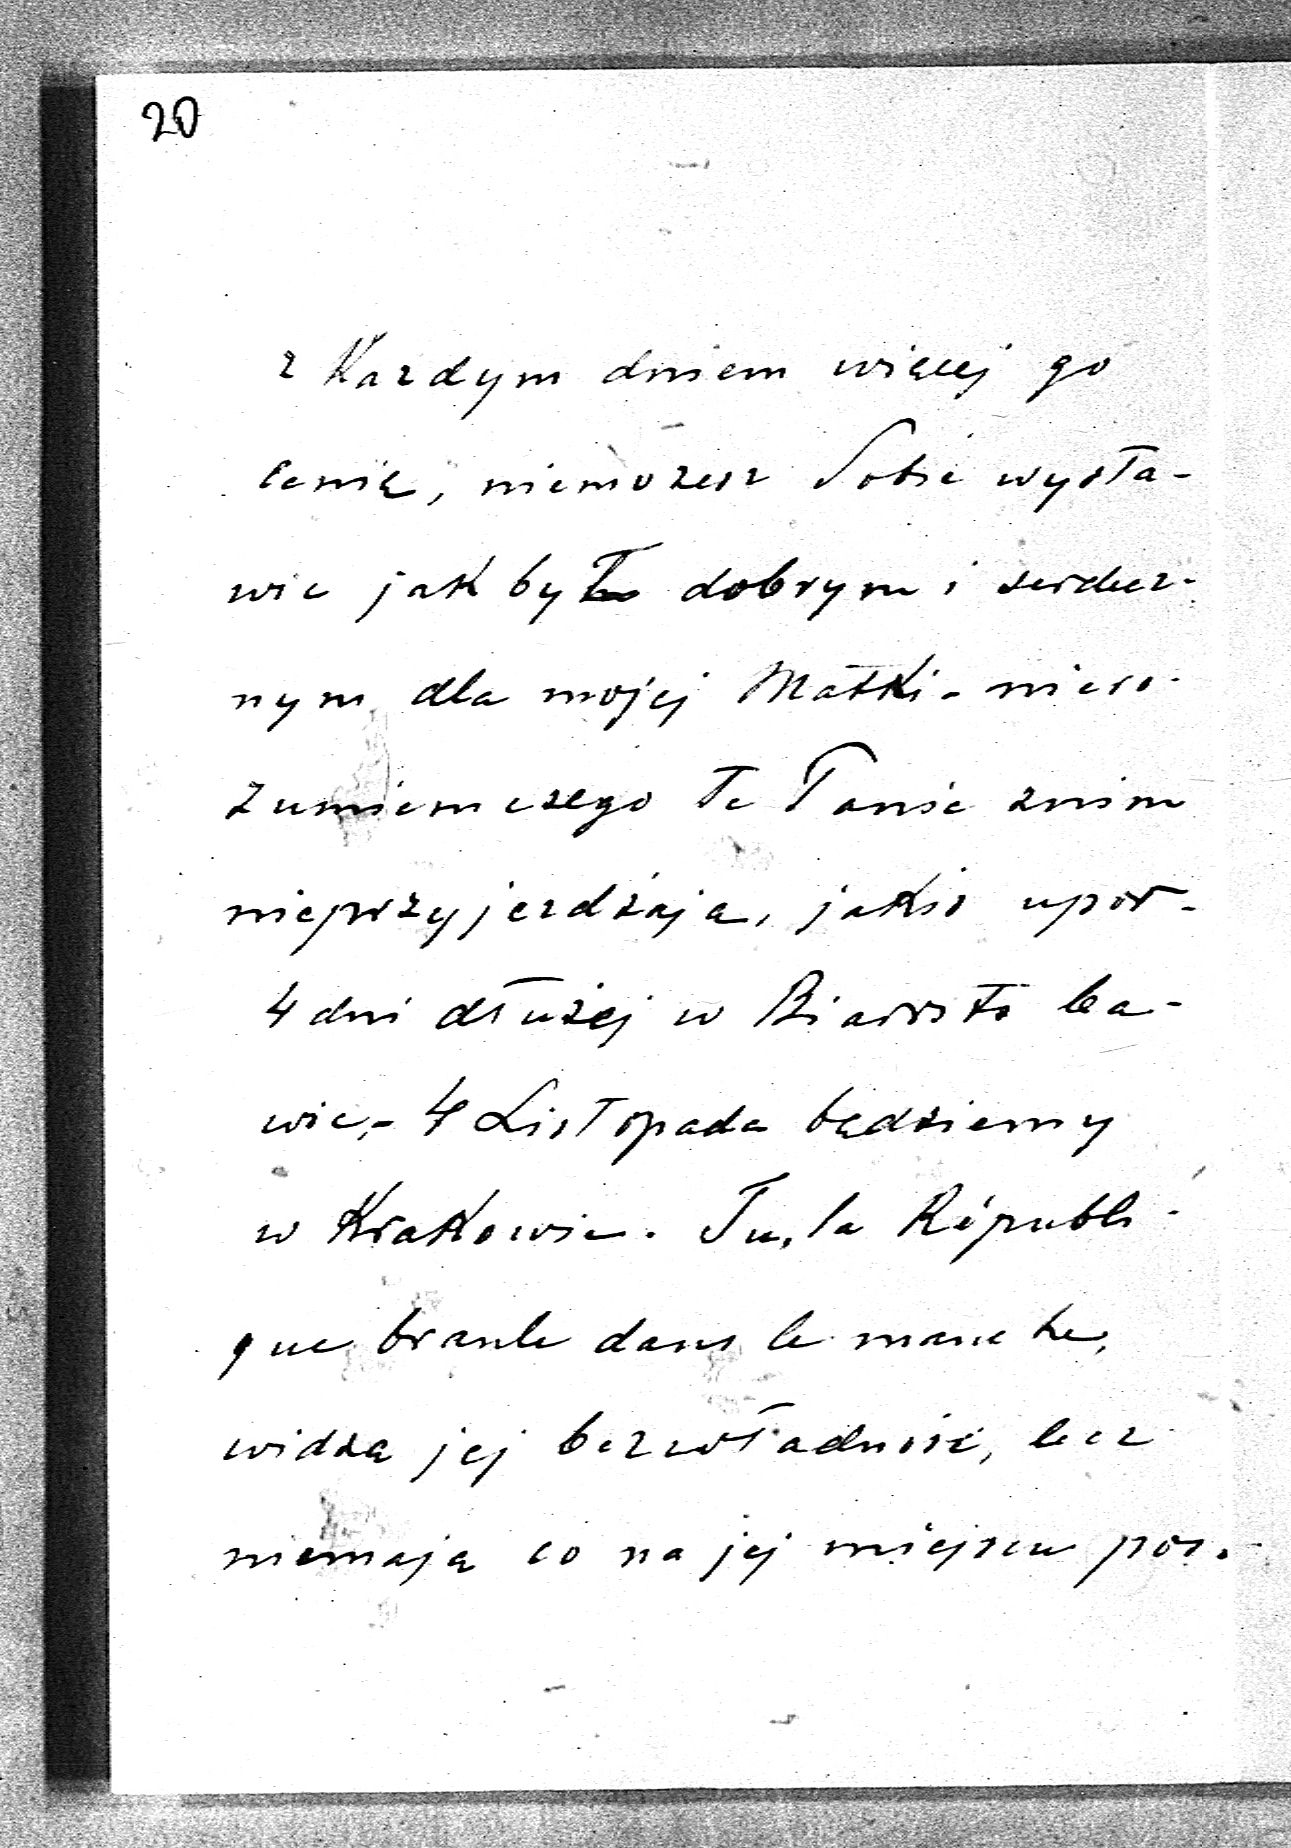 20
z Kazdym dniem więcej go
cenię, niemozesz Sobie wysta-
wic jak był dobrym i serdecz-
nym dla mojej Matki - niero-
zumiem czego te Panie znim
nieprzyjezdżają, jakis upor -
4 dni dłużej w Biarrits ba-
wic, - 4 Listopada będziemy
w Krakowie. Tu, la Républi-
que branle dans le manche,
widzą jej bezwładność, lecz
niemają co na jej miejscu pos.